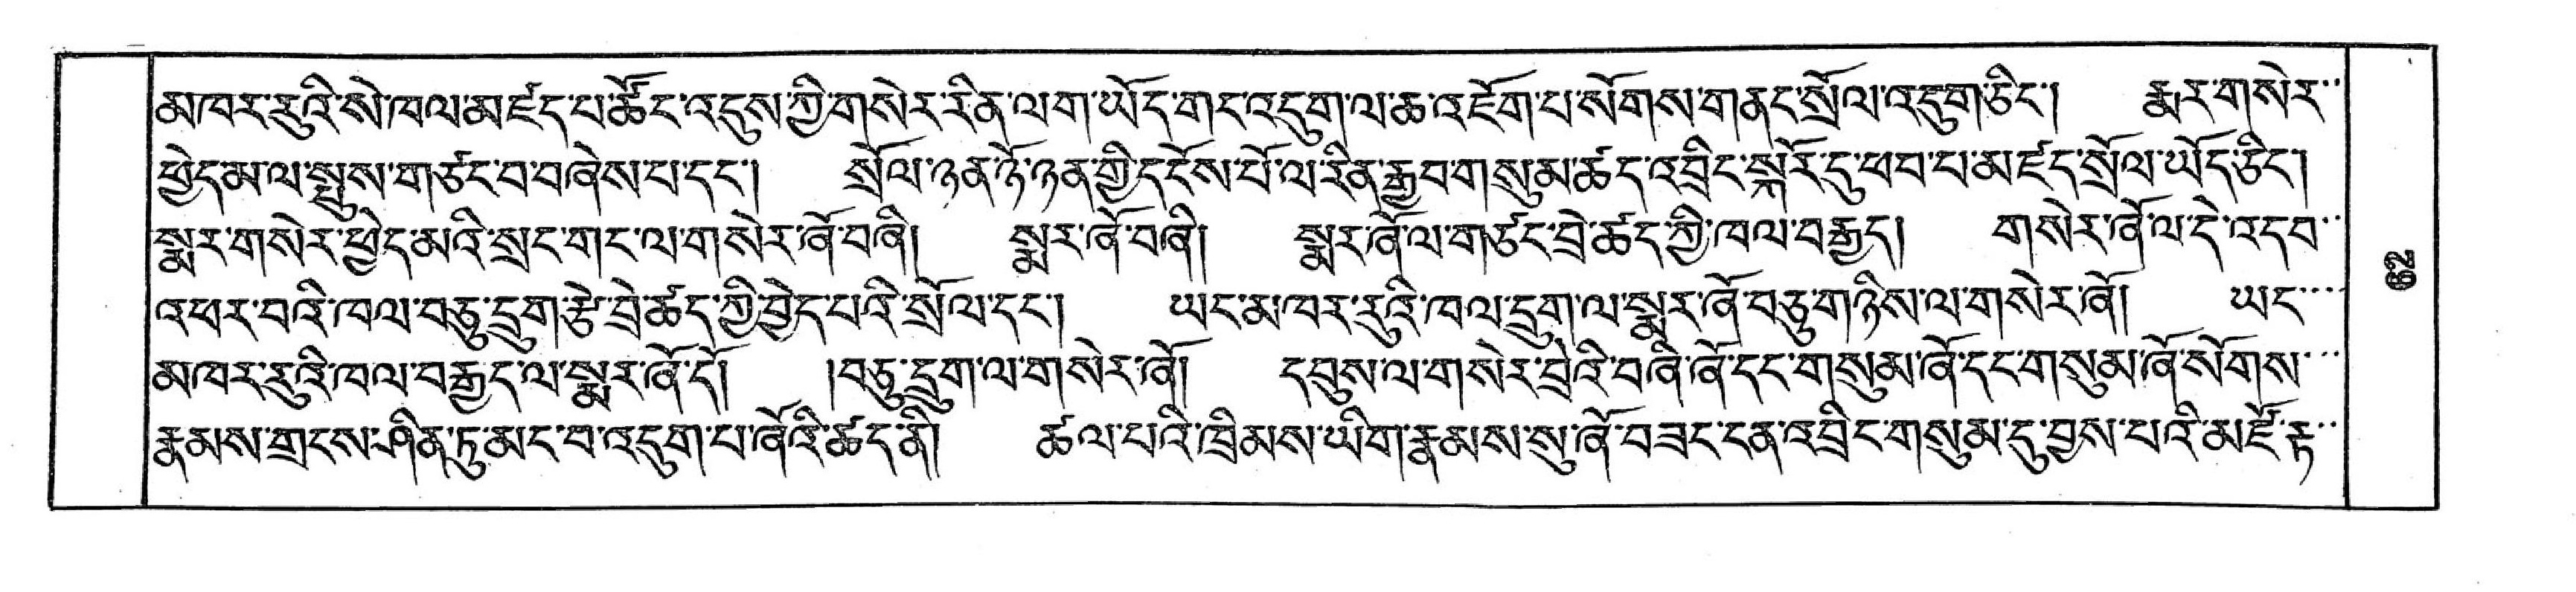 མཁར་རུའི་སེ་ཁལ་མ་ཛད་པ་ཚོང་འདུས་ཀྱི་གསེར་རིན་ལག་ཡོད་གང་འདུག་ལ་ཆ་འཇོག་པ་སོགས་གནང་སྲོལ་འདུག་ཅིང་། རྨར་གསེར་
ཕྱེད་མ་ལ་སྤུས་གཙང་བ་བཞེས་པ་དང་། སྲོལ་ཉན་ཉོ་ཉན་གྱི་དངོས་པོ་ལ་རིན་རྒྱབ་གསུམ་ཚད་འབྲིང་སྐོར་དུ་ཕབ་པ་མཛད་སྲོལ་ཡོད་ཅིང་།
སྨར་གསེར་ཕྱེད་མའི་སྲང་གང་ལ་གསེར་ཞོ་བཞི། སྨར་ཞོ་བཞི། སྨར་ཞོ་ལ་གཙང་བྲེ་ཚད་ཀྱི་ཁལ་བརྒྱད། གསེར་ཞོ་ལ་དེ་འདབ་
འཕར་བའི་ཁལ་བཅུ་དྲུག་རྩེ་བྲེ་ཚད་ཀྱི་བྱེད་པའི་སྲོལ་དང་། ཡང་མཁར་རུའི་ཁལ་དྲུག་ལ་སྨར་ཞོ་བཅུ་གཉིས་ལ་གསེར་ཞོ། ཡང་
མཁར་རུའི་ཁལ་བརྒྱད་ལ་སྨར་ཞོ་དོ། །བཅུ་དྲུག་ལ་གསེར་ཞོ། དབུས་ལ་གསེར་བྲེའི་བཞི་ཞོ་དང་གསུམ་ཞོ་དང་གསུམ་ཞོ་སོགས་
རྣམས་གྲངས་ཤིན་ཏུ་མང་བ་འདུག་པ་ཞོའི་ཚད་ནི། ཚལ་པའི་ཁྲིམས་ཡིག་རྣམས་སུ་ཞོ་བཟང་ངན་འབྲིང་གསུམ་དུ་བྱས་པའི་མཛོ་རྟ་